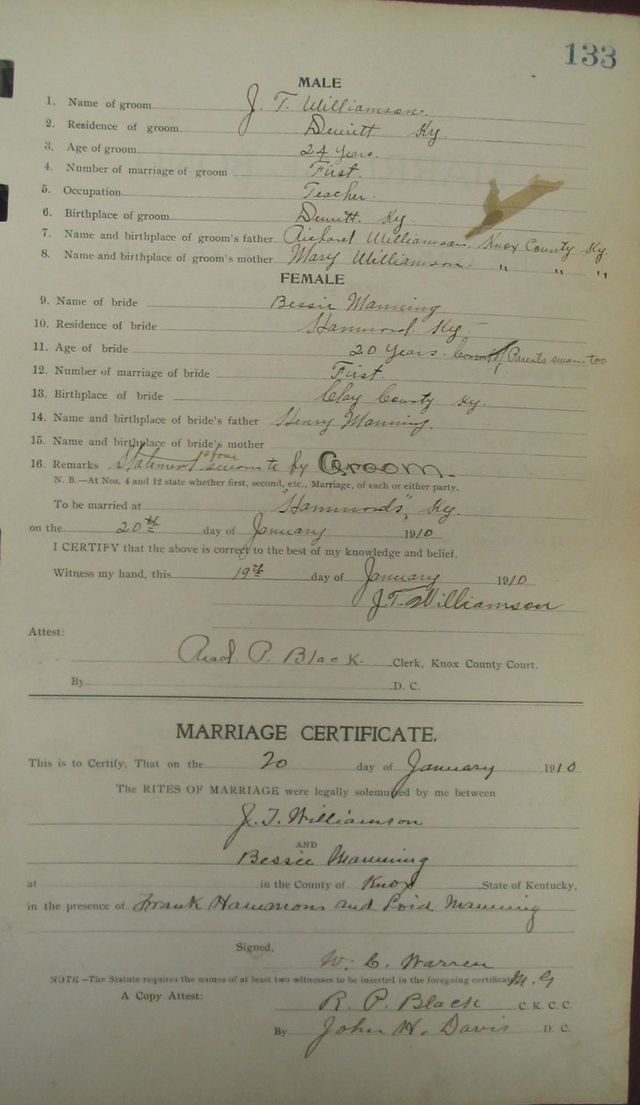 133
MALE
1. Name of groom J. T. Williamson.
2. Residence of groom Dewitt Ky.
3. Age of groom 24 Years.
4. Number of marriage of groom First.
5. Occupation Teacher.
6. Birthplace of groom Dewitt. Ky.
7. Name and birthplace of groom's father Williamson. Knox County Ky
8. Name and birthplace of groom's mother Mary Williamson. " " "
FEMALE
9. Name of bride Bessie Manning
10. Residence of bride Hammond Ky.
11. Age of bride 20 Years. Parents sworn too
12. Number of marriage of bride First.
13. Birthplace of bride Clay County Ky.
14. Name and birthplace of bride's father Henry Manning.
15. Name and birthplace of bride's mother
16. Remarks Statement above sworn to by Groom.
N. B.—At Nos. 4 and 12 state whether first, second, etc., Marriage, of each or either party.
To be married at "Hammonds", Ky.
on the 20th day of January 1910
I CERTIFY that the above is correct to the best of my knowledge and belief.
Witness my hand, this 19th day of January 1910
J.T. Williamson
Attest:
Read P. Black. Clerk, Knox County Court.
By D. C.
MARRIAGE CERTIFICATE.
This is to Certify, That on the 20 day of January 1910
The RITES OF MARRIAGE were legally solemnized by me between
J. T. Williamson
AND
Bessie Manning
at in the County of Knox State of Kentucky,
in the presence of Frank Hammons and Manning
Signed,
W. C. Warren
NOTE—The Statute requires the names of at least two witnesses to be inserted in the foregoing certificate M. G
A Copy Attest: R. P. Black C. K. C. C.
By John H. Davis D. C.